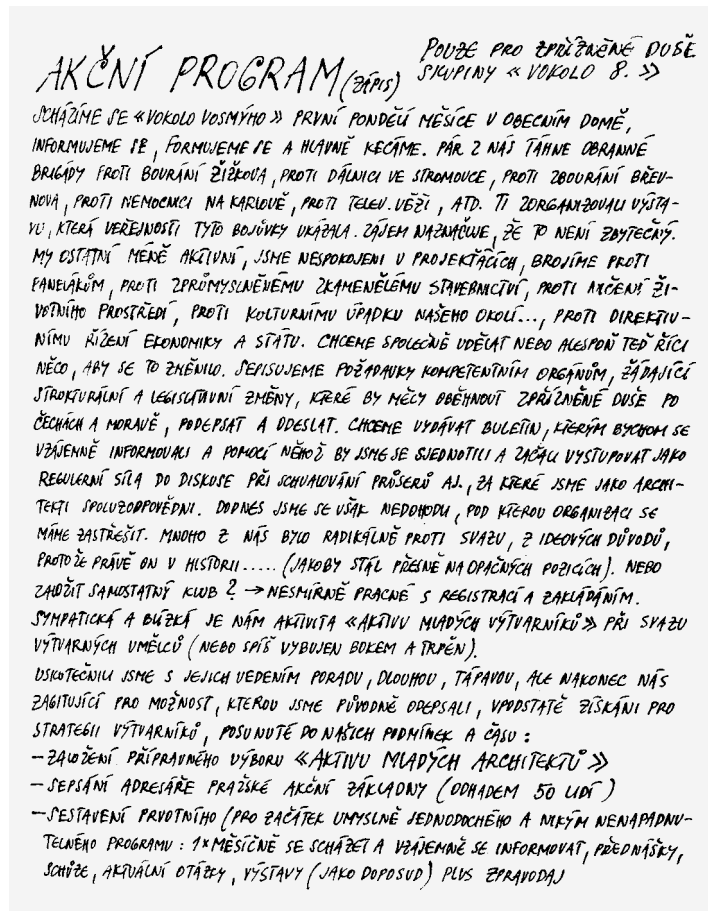 AKČNÍ PROGRAM (ZÁPIS)
POUZE PRO ZPŘÍZNĚNÉ DUŠE
SKUPINY « VOKOLO 8. »
SCHÁZÍME SE « VOKOLO VOSMÝHO » PRVNÍ PONDĚLÍ MĚSÍCE V OBECNÍM DOMĚ,
INFORMUJEME SE, FORMUJEME SE A HLAVNĚ KECÁME. PÁR Z NÁS TÁHNE OBRANNÉ
BRIGÁDY PROTI BOURÁNÍ ŽIŽKOVA, PROTI DÁLNICI VE STROMOVCE, PROTI ZBOURÁNÍ BŘEV-
NOVA, PROTI NEMOCNICI NA KARLOVĚ, PROTI TELEV. VĚŽI, ATD. TI ZORGANIZOVALI VÝSTA-
VU, KTERÁ VEŘEJNOSTI TYTO BOJŮVKY UKÁZALA. ZÁJEM NAZNAČUJE, ŽE TO NENÍ ZBYTEČNÝ.
MY OSTATNÍ MÉNĚ AKTIVNÍ, JSME NESPOKOJENI V PROJEKŤÁCÍCH, BROJÍME PROTI
PANELÁKŮM, PROTI ZPRŮMYSLNĚNÉMU ZKAMENĚLÉMU STAVEBNICTVÍ, PROTI NIČENÍ ŽI-
VOTNÍHO PROSTŘEDÍ, PROTI KULTURNÍMU ÚPADKU NAŠEHO OKOLÍ..., PROTI DIREKTIV-
NÍMU ŘÍZENÍ EKONOMIKY A STÁTU. CHCEME SPOLEČNĚ UDĚLAT NEBO ALESPOŇ TEĎ ŘÍCI
NĚCO, ABY SE TO ZMĚNILO. SEPISUJEME POŽADAVKY KOMPETENTNÍM ORGÁNŮM, ŽÁDAJÍCÍ
STRUKTURÁLNÍ A LEGISLATIVNÍ ZMĚNY, KTERÉ BY MĚLY OBĚHNOUT ZPŘÍZNĚNÉ DUŠE PO
ČECHÁCH A MORAVĚ, PODEPSAT A ODESLAT. CHCEME VYDÁVAT BULETIN, KTERÝM BYCHOM SE
VZÁJEMNĚ INFORMOVALI A POMOCÍ NĚHOŽ BY JSME SE SJEDNOTILI A ZAČALI VYSTUPOVAT JAKO
REGULERNÍ SÍLA DO DISKUSE PŘI SCHVALOVÁNÍ PRŮSERŮ AJ., ZA KTERÉ JSME JAKO ARCHI-
TEKTI SPOLUZODPOVĚDNI. DODNES JSME SE VŠAK NEDOHODLI, POD KTEROU ORGANIZACI SE
MÁME ZASTŘEŠIT. MNOHO Z NÁS BYLO RADIKÁLNĚ PROTI SVAZU, Z IDEOVÝCH DŮVODŮ,
PROTOŽE PRÁVĚ ON V HISTORII..... (JAKOBY STÁL PŘESNĚ NA OPAČNÝCH POZICÍCH). NEBO
ZALOŽIT SAMOSTATNÝ KLUB ? → NESMÍRNĚ PRACNÉ S REGISTRACÍ A ZAKLÁDÁNÍM.
SYMPATICKÁ A BLÍZKÁ JE NÁM AKTIVITA « AKTIVU MLADÝCH VÝTVARNÍKŮ » PŘI SVAZU
VÝTVARNÝCH UMĚLCŮ (NEBO SPÍŠ VYBUJEN BOKEM A TRPĚN).
USKUTEČNILI JSME S JEJICH VEDENÍM PORADU, DLOUHOU, TÁPAVOU, ALE NAKONEC NÁS
ZAGITUJÍCÍ PRO MOŽNOST, KTEROU JSME PŮVODNĚ ODEPSALI, VPODSTATĚ ZÍSKÁNI PRO
STRATEGII VÝTVARNÍKŮ, POSUNUTÉ DO NAŠICH PODMÍNEK A ČASU :
– ZALOŽENÍ PŘÍPRAVNÉHO VÝBORU « AKTIVU MLADÝCH ARCHITEKTŮ »
– SEPSÁNÍ ADRESÁŘE PRAŽSKÉ AKČNÍ ZÁKLADNY (ODHADEM 50 LIDÍ)
– SESTAVENÍ PRVOTNÍHO (PRO ZAČÁTEK UMYSLNĚ JEDNODUCHÉHO A NIKÝM NENAPADNU-
TELNÉHO PROGRAMU : 1× MĚSÍČNĚ SE SCHÁZET A VZÁJEMNĚ SE INFORMOVAT, PŘEDNÁŠKY,
SCHŮZE, AKTUÁLNÍ OTÁZKY, VÝSTAVY (JAKO DOPOSUD) PLUS ZPRAVODAJ